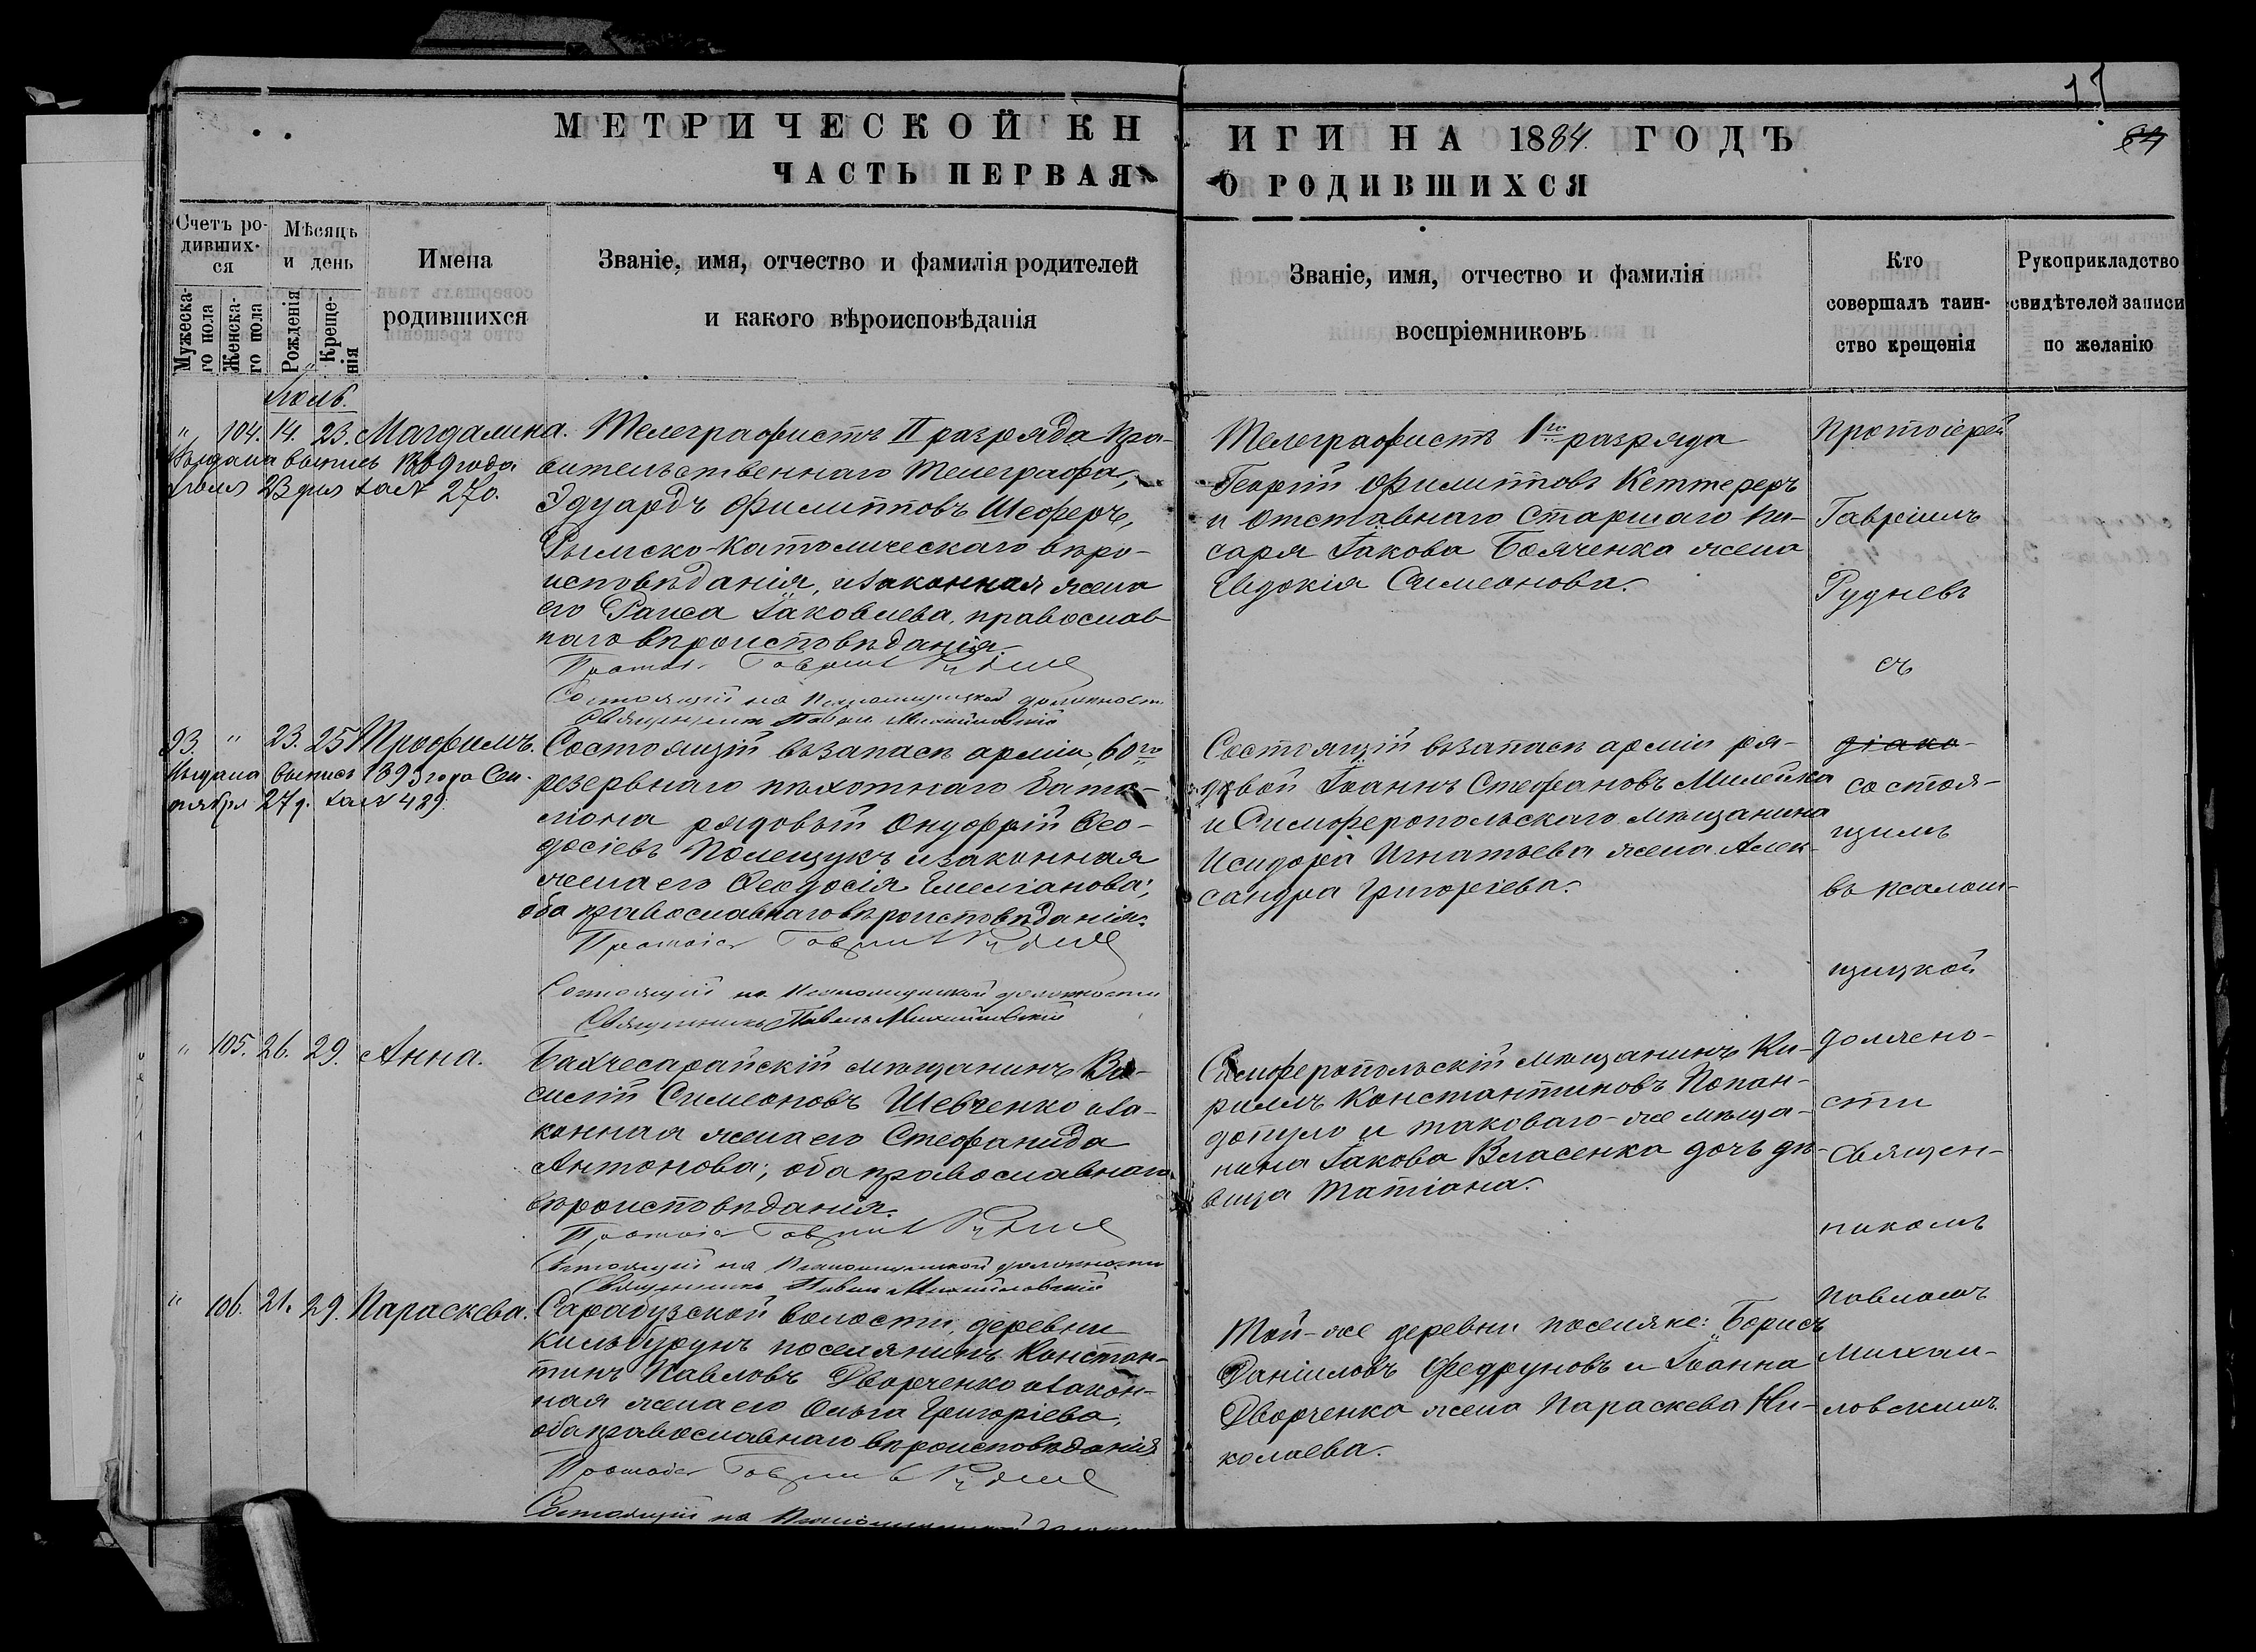 17
МЕТРИЧЕСКОЙ КН
ИГИ НА 1884. ГОДЪ
ЧАСТЬ ПЕРВАЯ
О РОДИВШИХСЯ
Счетъ ро-
дивших-
ся
Мужеска-
го пола
Женска-
го пола
Мѣсяцъ
и день
Рожденія
Креще-
нія
Имена
родившихся
Званіе, имя, отчество и фамилія родителей
и какого вѣроисповѣданія
Званіе, имя, отчество и фамилія
воспріемниковъ
Кто
совершалъ таин-
ство крещенія
Рукоприкладство
свидѣтелей записи
по желанію
Іюль.
" 104. 14. 23. Магдалина.
Выдана выпись 1889 года
Іюля 23 дня за № 270.
Телеграфистъ II разряда Пра-
вительственнаго Телеграфа,
Эдуардъ Филипповъ Шеферъ,
Римско-Католическаго вѣро-
исповѣданія, и законная жена
его Раиса Іаковлева, православ-
наго вѣроисповѣданія.
Состоящій на Псаломщицкой должности
Священникъ Павелъ Михайловскій
Телеграфистъ 1го разряда
Георгій Филипповъ Кеттереръ
и отставнаго старшаго пи-
саря Іакова Бояченка жена
Евдокія Симеонова.
93. " 23. 25. Трофимъ.
Выдана выпись 1893 года Сен-
тября 27 д. за № 489.
Состоящій въ запасѣ арміи, 60го
резервнаго пѣхотнаго бата-
ліона рядовый Онуфрій Ѳео-
досіевъ Полещукъ и законная
жена его Ѳеодосія Емеліанова;
оба православнаго вѣроисповѣданія.
Протоіер. Гавріилъ Рудневъ
Состоящій на Псаломщицкой должности
Священникъ Павелъ Михайловскій
Состоящій въ запасѣ арміи ря-
довой Іоаннъ Стефановъ Милейка
и Симферопольскаго мѣщанина
Исидора Игнатьева жена Алек-
сандра Григоріева.
" 105. 26. 29. Анна.
Бахчесарайскій мѣщанинъ Ва-
силій Симеоновъ Шевченко и за-
конная жена его Стефанида
Антонова; оба православнаго
вѣроисповѣданія.
Протоіер. Гавріилъ Рудневъ
Состоящій на Псаломщицкой должности
Священникъ Павелъ Михайловскій
Симферопольскій мѣщанинъ Ки-
риллъ Константиновъ Попан-
допуло и таковаго-же мѣща-
нина Іакова Власенка дочь дѣ-
вица Татіана.
" 106. 21. 29. Параскева.
Сарабузской волости, деревни
Кильбурунъ поселянинъ Констан-
тинъ Павловъ Дворченко и закон-
ная жена его Ольга Григоріева;
оба православнаго вѣроисповѣданія
Протоіер. Гавріилъ Рудневъ
Состоящій на
Той-же деревни поселяне: Борисъ
Даніиловъ Федруновъ и Іоанна
Дворченка жена Параскева Ни-
колаева.
Протоіерей
Гавріилъ
Рудневъ
съ
діако-
состоя-
щимъ
въ псалом-
щицкой
должно-
сти
Священ-
никомъ
Павломъ
Михай-
ловскимъ